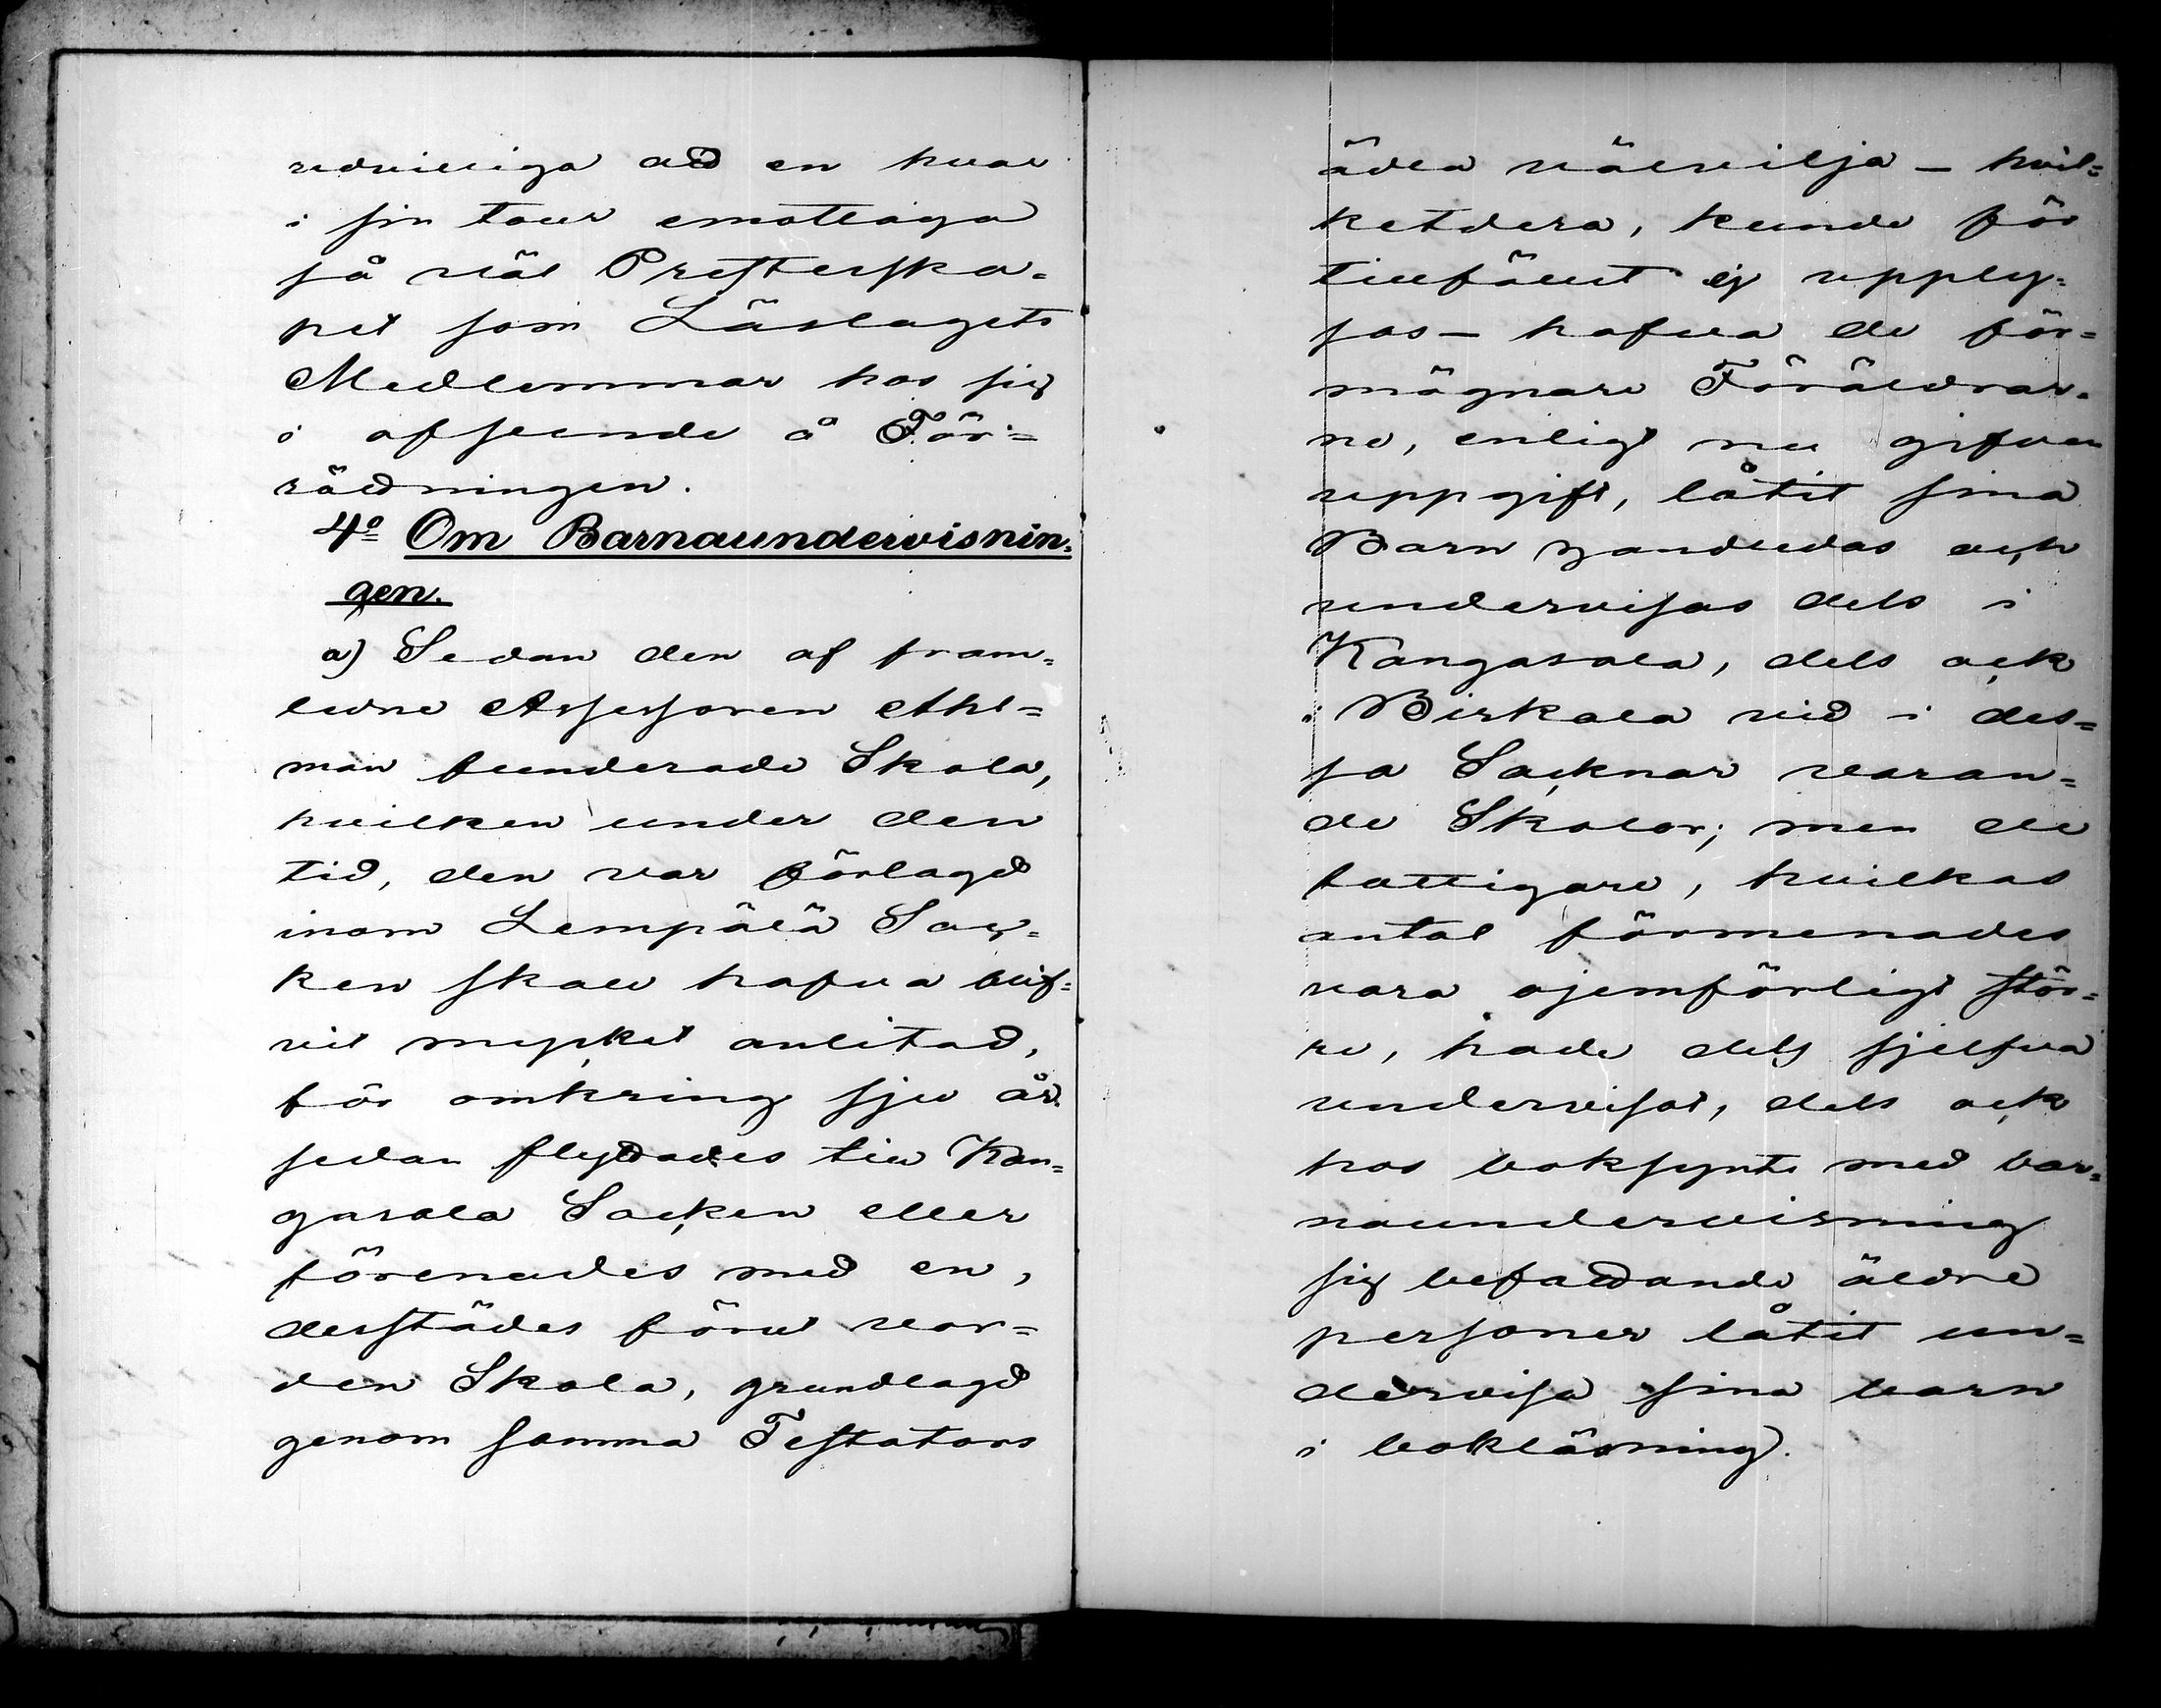 redvilliga att en hvar
i sin tour emottaga
så väl Presterska=
pet som Läslagets
Medlemmar hos sig
i afseende å För=
rättningen.
4º Om Barnaundervisnin=
gen.
a) Sedan den af fram=
ledne Assessoren Ahl=
man funderade Skola,
hvilken under den
tid, den var förlagd
inom Lempälä Soc=
ken skall hafva blif=
vit mycket anlitad,
för omkring sju år
sedan flyttades till Kan=
gasala Socken eller
förenades med en,
derstädes förut vor=
den Skola, grundlagd
genom samma Testators
ädla välvilja – hvil=
ketdera, kunde för
tillfället ej upply=
sas – hafva de för=
mögnare Föräldrar=
ne, enligt nu gifven
uppgift, låtit sina
Barn handledas och
undervisas dels i
Kangasala, dels ock
i Birkala vid i des=
sa Socknar varan=
de Skolor; men de
fattigare, hvilkas
antal förmenades
vara ojemförligt stör=
re, hade dels sjelfva
undervisat, dels ock
hos boksynta med bar=
naundervisning
sig befattande äldre
personer låtit un=
dervisa sina barn
i bokläsning.